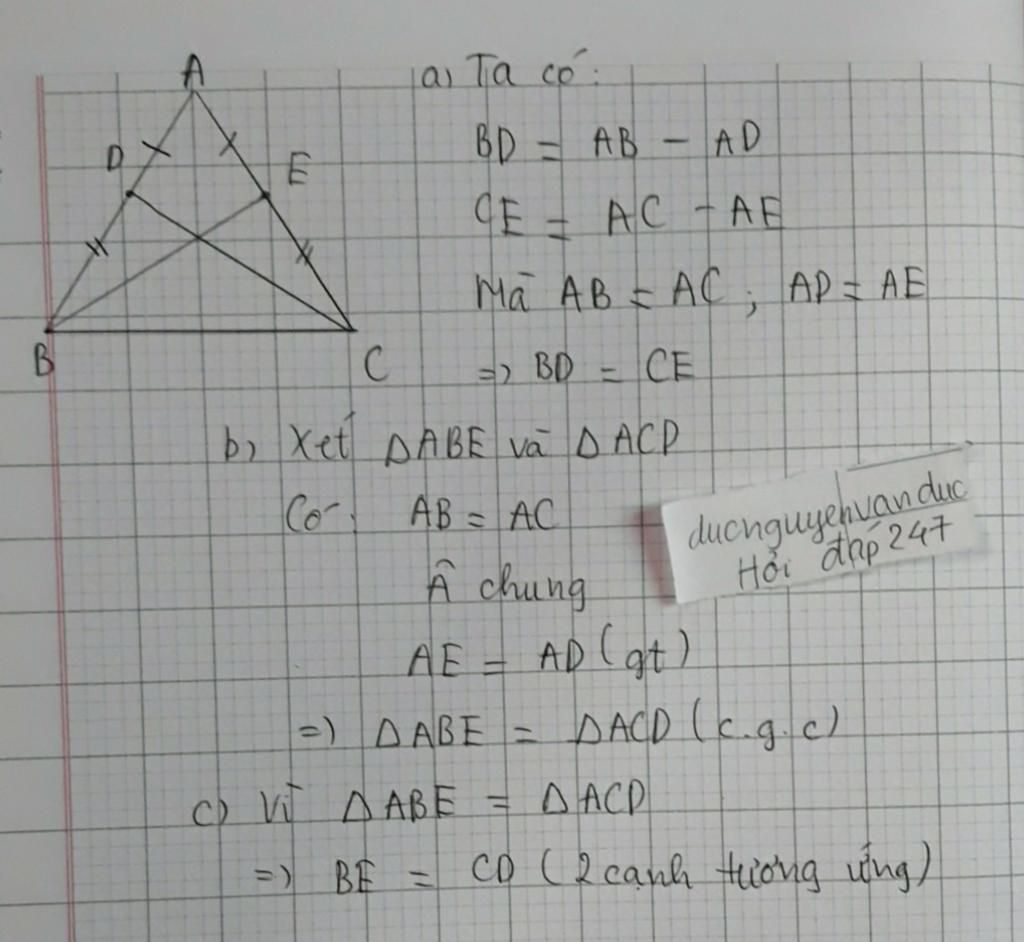 A
D
E
B
C
a) Ta có:
BD = AB - AD
CE = AC - AE
Mà AB = AC; AD = AE
=> BD = CE
b) Xét ΔABE và ΔACD
Có: AB = AC
Â chung
AE = AD (gt)
=> ΔABE = ΔACD (c.g.c)
c) Vì ΔABE = ΔACD
=> BE = CD (2 cạnh tương ứng)
ducnguyenvanduc
Hỏi đáp 247